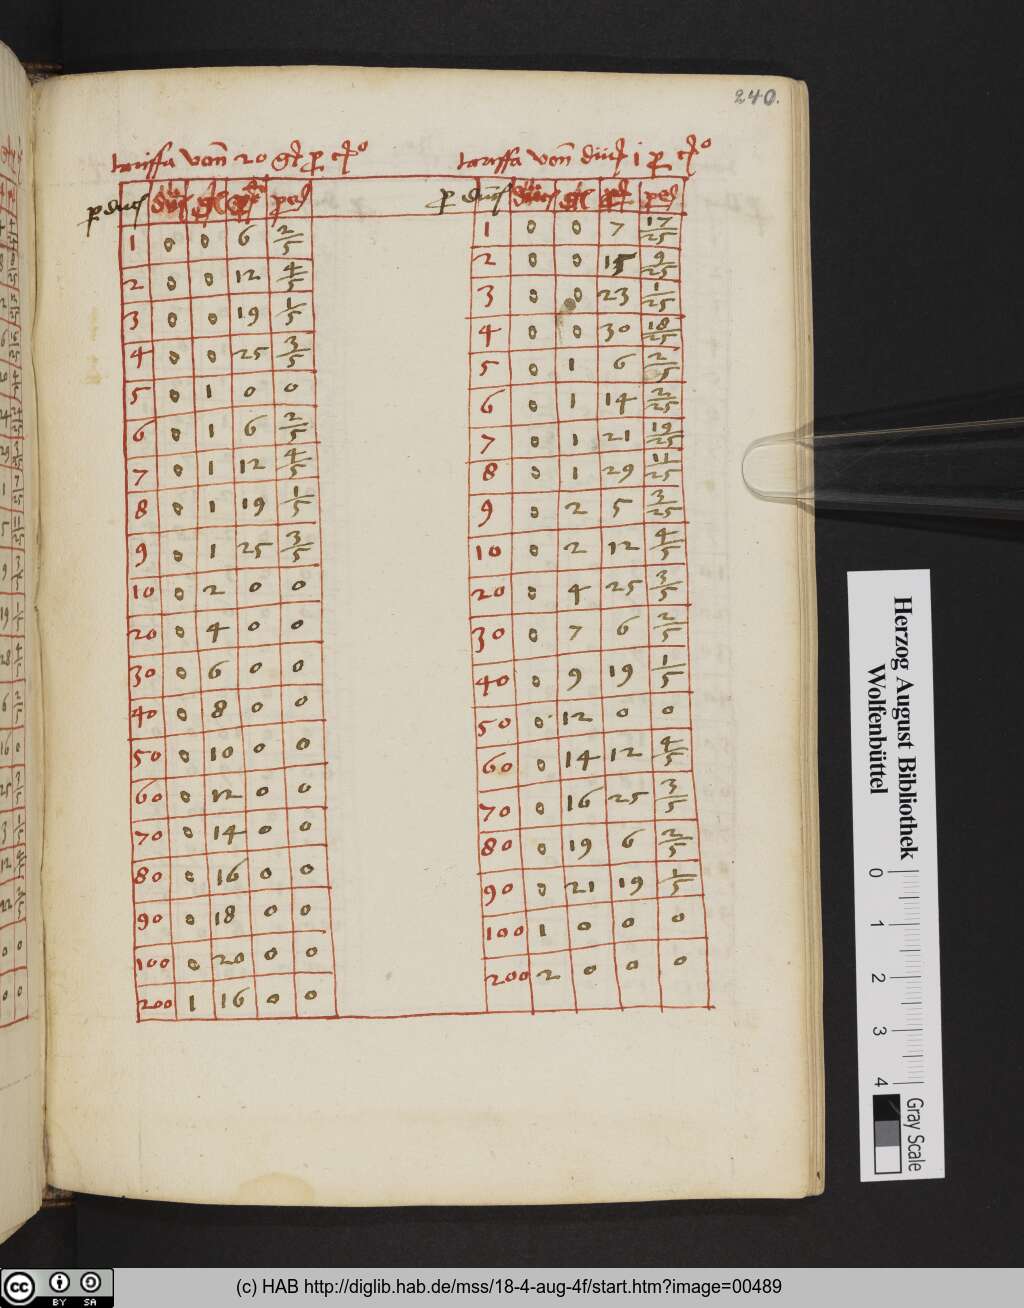 240.
tariffa vonn 20 gl pro cto
pro duc duc gl pf ped
1 0 0 6 2/5
2 0 0 12 4/5
3 0 0 19 1/5
4 0 0 25 3/5
5 0 1 0 0
6 0 1 6 2/5
7 0 1 12 4/5
8 0 1 19 1/5
9 0 1 25 3/5
10 0 2 0 0
20 0 4 0 0
30 0 6 0 0
40 0 8 0 0
50 0 10 0 0
60 0 12 0 0
70 0 14 0 0
80 0 16 0 0
90 0 18 0 0
100 0 20 0 0
200 1 16 0 0
tariffa vonn duc 1 pro cto
pro duc duc gl pf ped
1 0 0 7 17/25
2 0 0 15 9/25
3 0 0 23 1/25
4 0 0 30 18/25
5 0 1 6 2/5
6 0 1 14 2/25
7 0 1 21 19/25
8 0 1 29 11/25
9 0 2 5 3/25
10 0 2 12 4/5
20 0 4 25 3/5
30 0 7 6 2/5
40 0 9 19 1/5
50 0 12 0 0
60 0 14 12 4/5
70 0 16 25 3/5
80 0 19 6 2/5
90 0 21 19 1/5
100 1 0 0 0
200 2 0 0 0
Herzog August Bibliothek
Wolfenbüttel
0 1 2 3 4
Gray Scale
cc BY SA
(c) HAB http://diglib.hab.de/mss/18-4-aug-4f/start.htm?image=00489